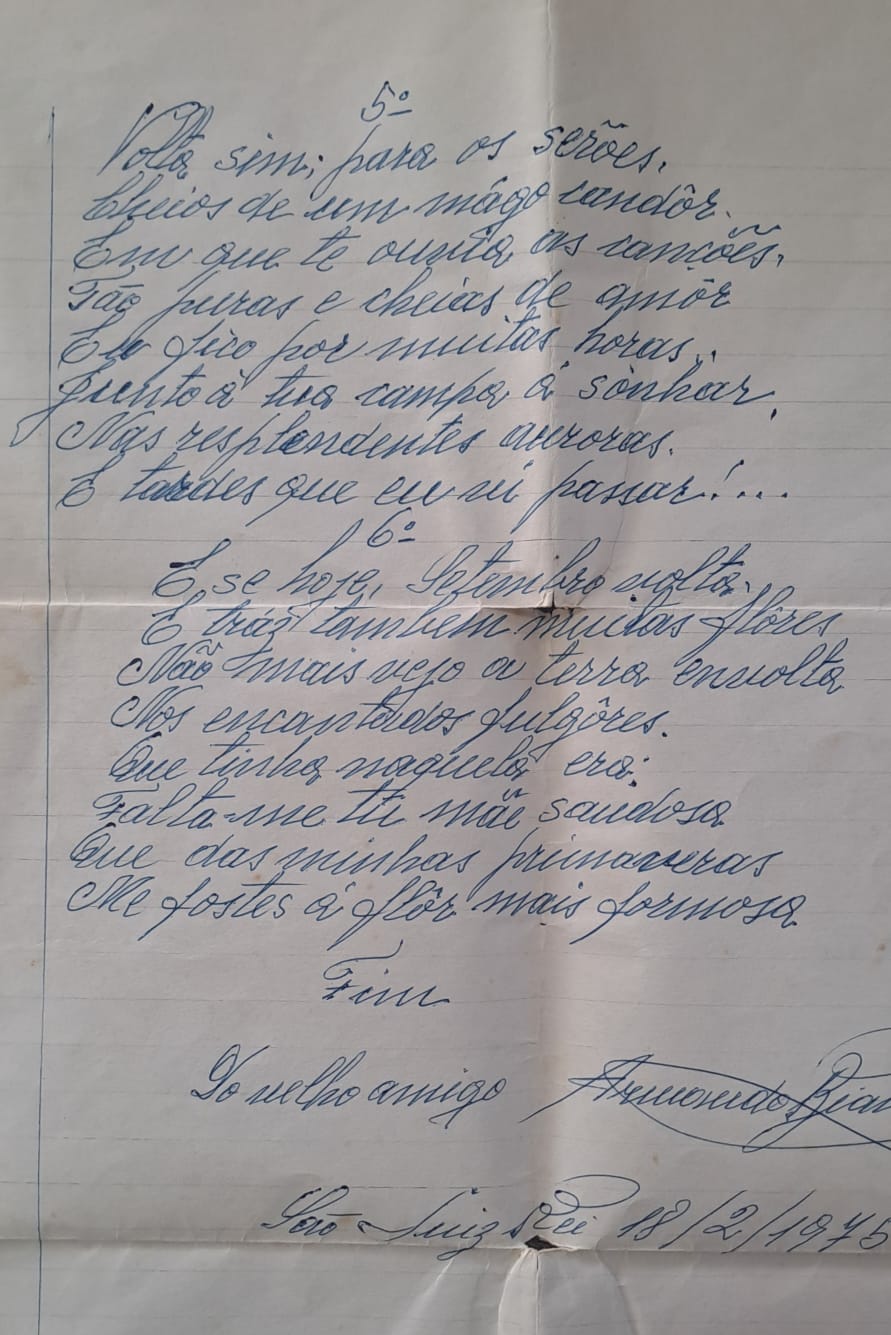 5º
Volta sim; para os serões.
Cheios de um mágo candôr.
Em que te ouvia as canções,
Tão puras e cheias de amôr
Eu fico por muitas horas..
Junto á tua campa á sonhar,
Nas resplendentes auroras.
E tardes que eu vi passar!...
6º
E se hoje, Setembro volta.
E tráz tambem muitas flôres
Não mais vejo a terra envolta
Nos encantados fulgôres.
Que tinha naquela era;
Falta-me tú mãe saudosa
Que das minhas primaveras
Me fostes á flôr mais formosa
Fim
Do velho amigo Armando
São Luiz Rei 18/2/1975